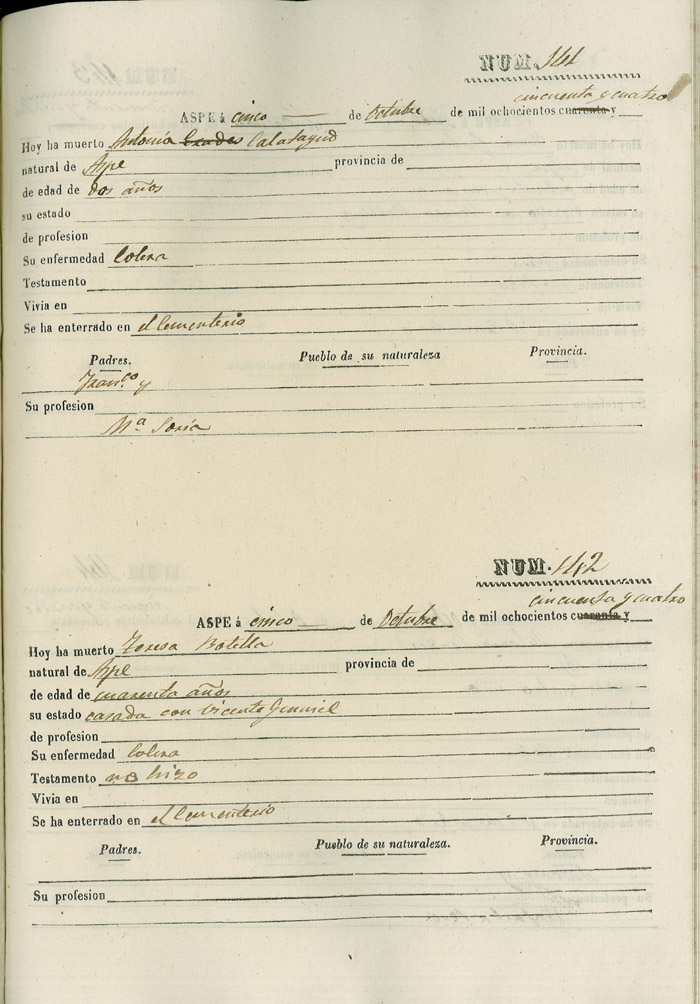 NUM. 141
cincuenta y cuatro
ASPE á cinco de Octubre de mil ochocientos cuarenta y
Hoy ha muerto Antonia Calatayud
natural de Aspe provincia de
de edad de dos años
su estado
de profesion
Su enfermedad Colera
Testamento
Vivia en
Se ha enterrado en el Cementerio
Padres. Pueblo de su naturaleza Provincia.
Franco y
Su profesion
Ma Soria
NUM. 142
cincuenta y cuatro
ASPE á cinco de Octubre de mil ochocientos cuarenta y
Hoy ha muerto Teresa Botella
natural de Aspe provincia de
de edad de cuarenta años
su estado casada con Vicente
de profesion
Su enfermedad Colera
Testamento no hizo
Vivia en
Se ha enterrado en el Cementerio
Padres. Pueblo de su naturaleza. Provincia.
Su profesion